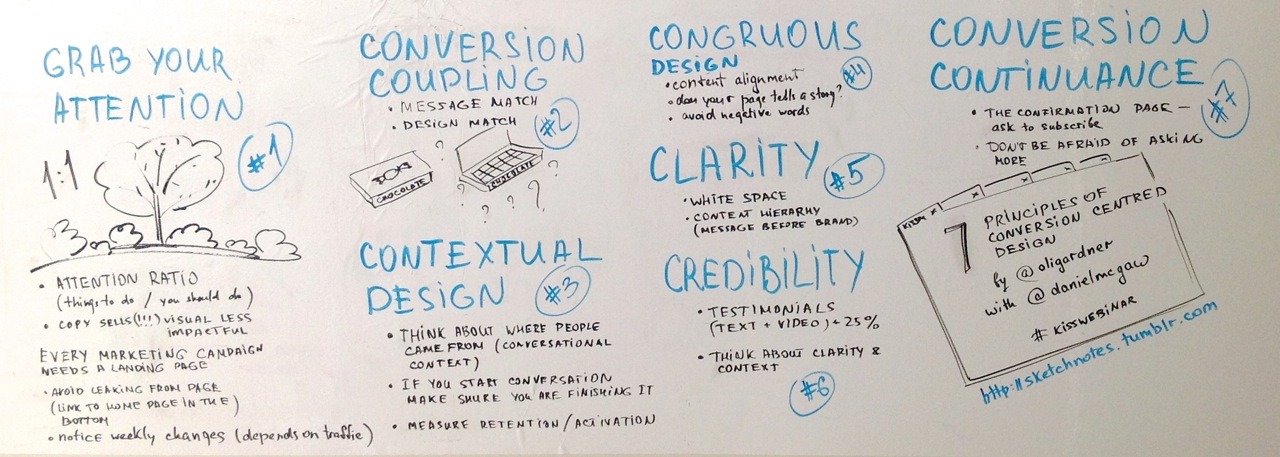 GRAB YOUR
ATTENTION
#1
1:1
• ATTENTION RATIO
(things to do / you should do)
• COPY SELLS(!!!) VISUAL LESS
IMPACTFUL
EVERY MARKETING CAMPAIGN
NEEDS A LANDING PAGE
• AVOID LEAKING FROM PAGE
(LINK TO HOME PAGE IN THE)
BOTTOM
• notice weekly changes (depends on traffic)
CONVERSION
COUPLING
• MESSAGE MATCH
• DESIGN MATCH
#2
CHOCOLATE
CHOCOLATE
? ? ? ? ? ?
CONTEXTUAL
DESIGN
#3
• THINK ABOUT WHERE PEOPLE
CAME FROM (CONVERSATIONAL
CONTEXT)
• IF YOU START CONVERSATION
MAKE SHURE YOU ARE FINISHING IT
• MEASURE RETENTION/ACTIVATION
CONGRUOUS
DESIGN
#4
• content alignment
• does your page tells a story?
• avoid negative words
CLARITY
#5
• WHITE SPACE
• CONTENT HIERARHY
(MESSAGE BEFORE BRAND)
CREDIBILITY
• TESTIMONIALS
(TEXT + VIDEO) + 25%
• THINK ABOUT CLARITY &
CONTEXT
#6
CONVERSION
CONTINUANCE
#7
• THE CONFIRMATION PAGE —
ask to subscribe
• DON'T BE AFRAID OF ASKING
MORE
x x x
7 PRINCIPLES OF
CONVERSION CENTRED
DESIGN
by @oligardner
with @danielmcgaw
#KISSWEBINAR
http://sketchnotes.tumblr.com